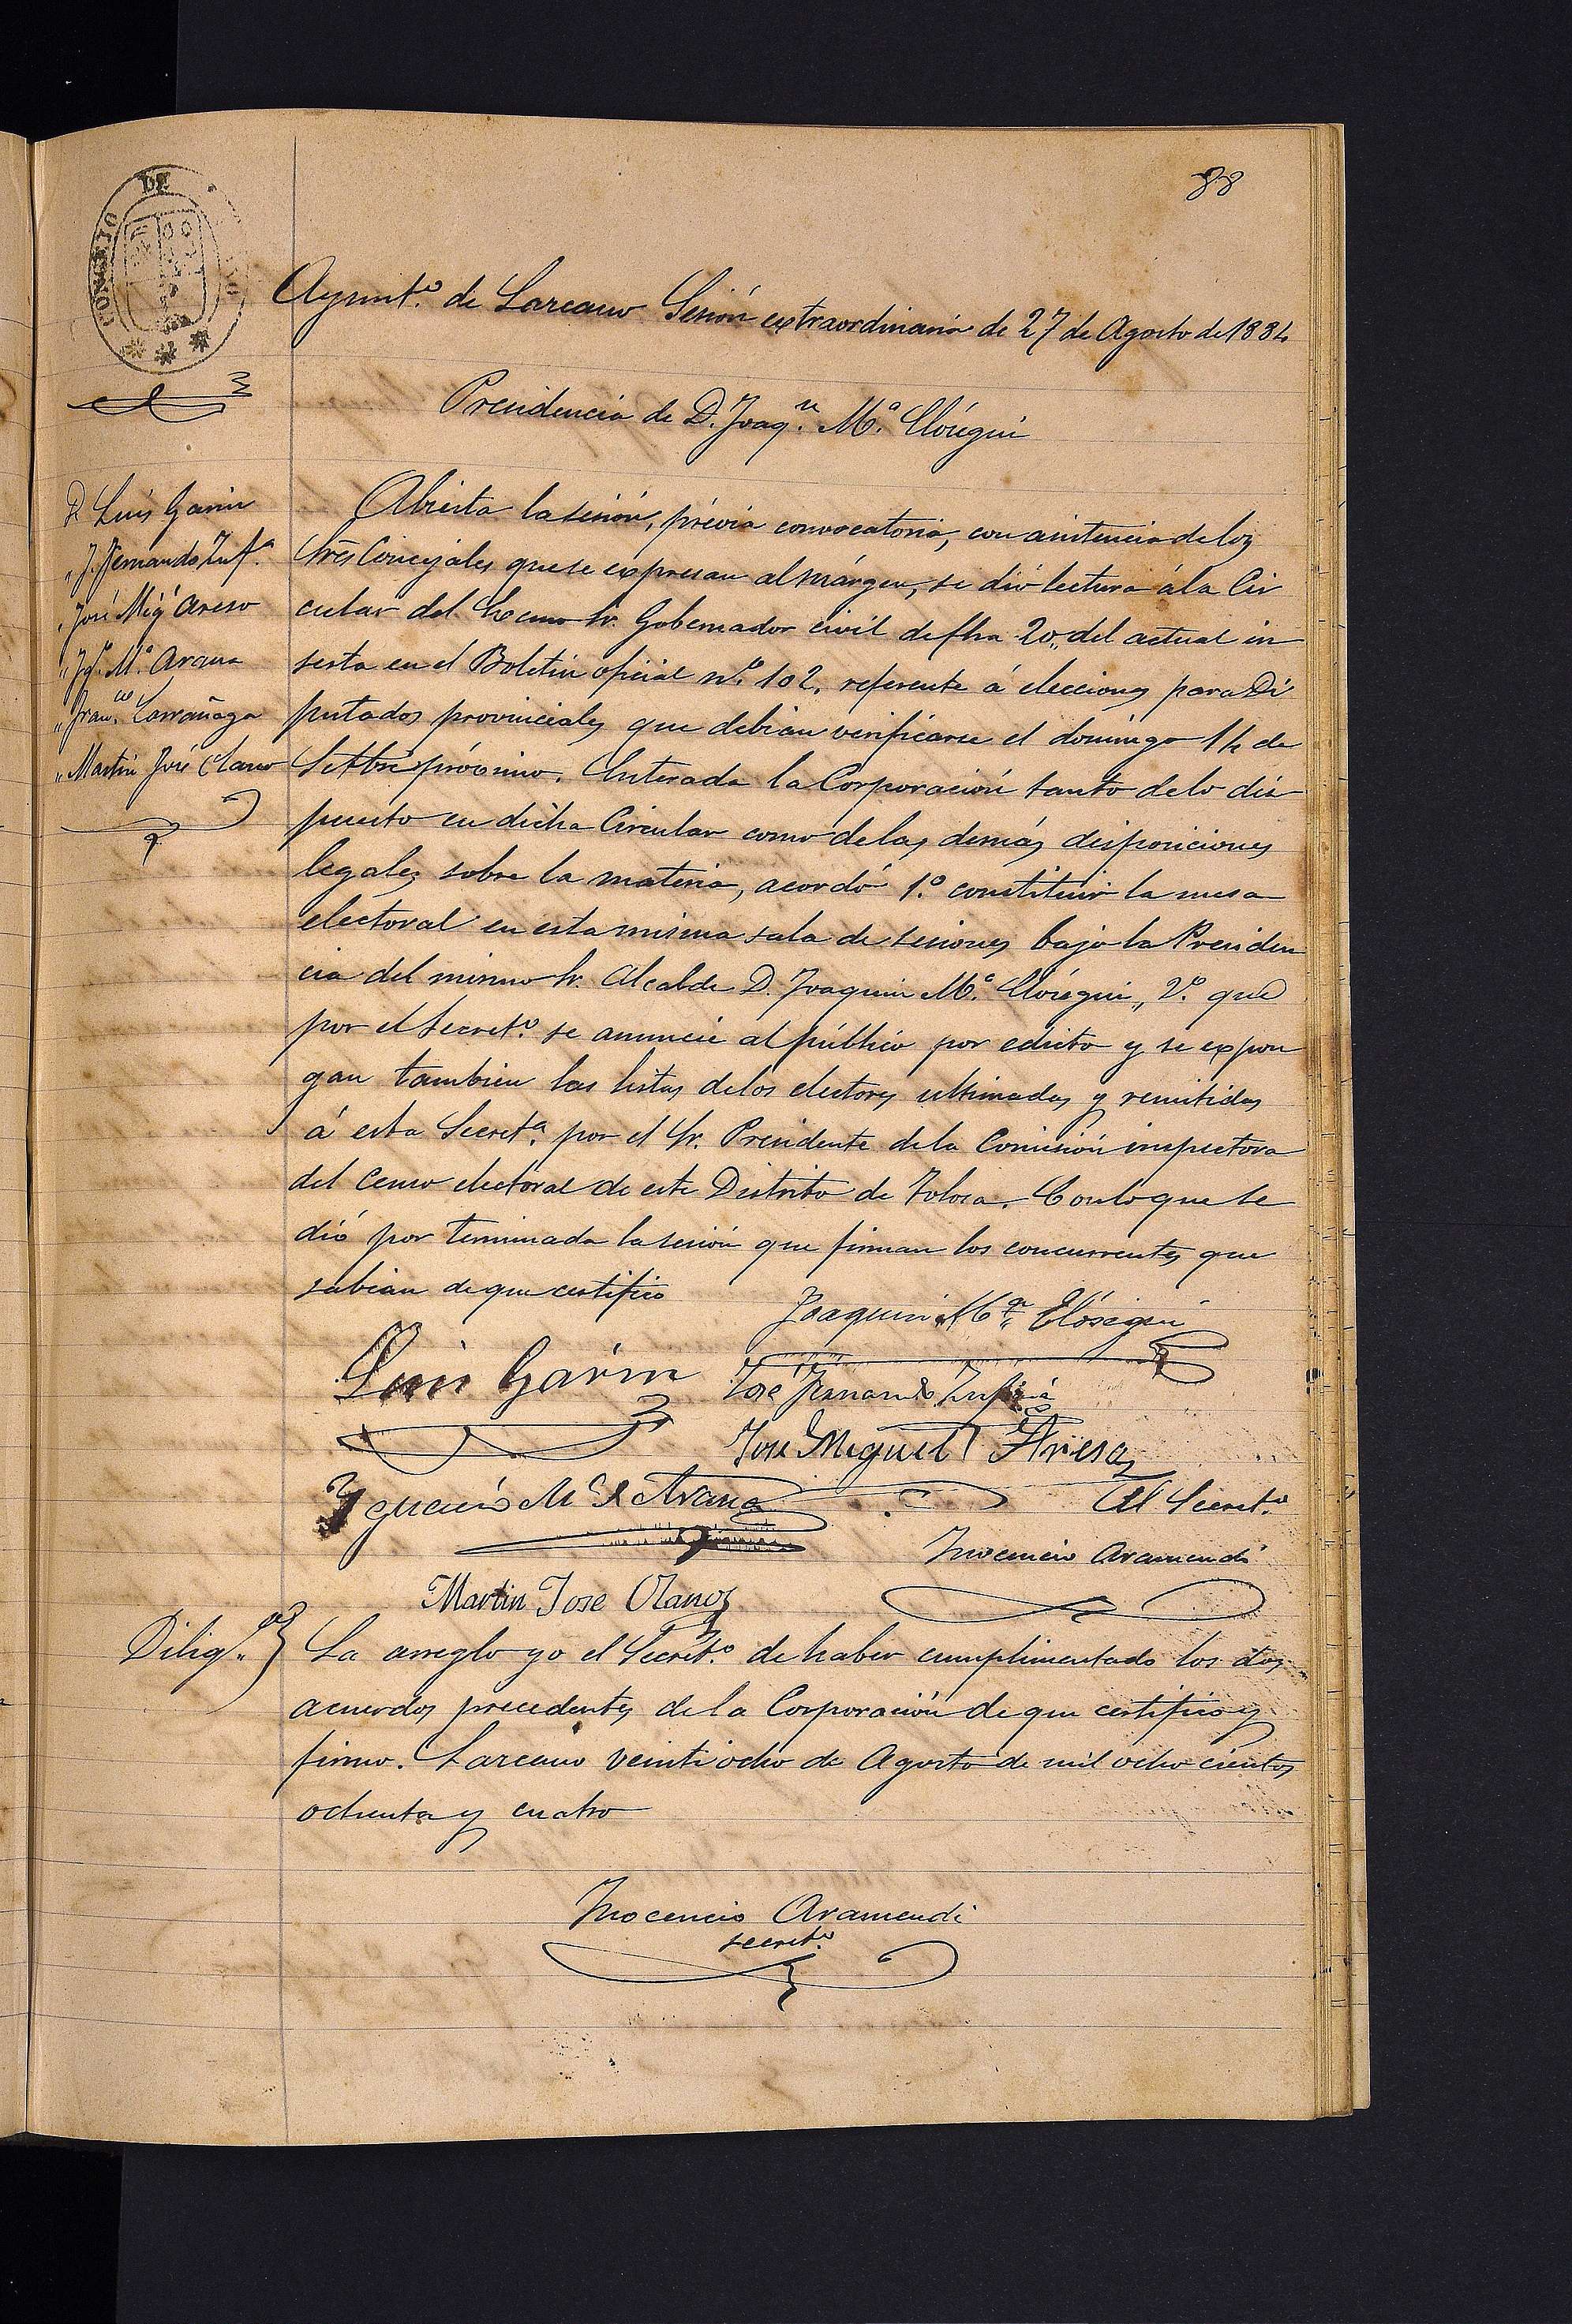 88
CONCEJO DE
Ayunt.º de Lazcano Sesión extraordinaria de 27 de Agosto de 1884
Presidencia de D. Joaq.n M.ª Elósegui
D. Luis Garin
" J. Fernando Zuf.ª
" José Mig.l Areso
" Ig.º M.ª Arana
" Fran.co Larrañaga
" Martin José Olano
Abierta la sesión, prévia convocatoria, con asistencia de los
Sres Concejales que se expresan al márgen, se dió lectura á la Cir
cular del Excmo Sr. Gobernador civil de fha 20, del actual in
serta en el Boletin oficial n.º 102, referente á elecciones para Di
putados provinciales que debian verificarse el domingo 14 de
Setbre próximo. Enterada la Corporación tanto de lo dis
puesto en dicha Circular como de las demás disposiciones
legales sobre la materia, acordó 1.º constituir la mesa
electoral en esta misma sala de sesiones bajo la Presiden
cia del mismo Sr. Alcalde D. Joaquin M.ª Elósegui, 2.º que
por el Secret.º se anuncie al público por edicto y se expon
gan tambien las listas de los electores ultimadas y remitidas
á esta Secret.ª por el Sr. Presidente de la Comisión inspectora
del Censo electoral de este Distrito de Tolosa. Con lo que se
dió por terminada la sesión que firman los concurrentes que
sabian de que certifico
Joaquin M.ª Elósegui
Luis Garin José Fernando
José Miguel Areso
Ygnacio M.ª de Arana El Secret.º
Inocencio Aramendi
Martin Jose Olano
Dilig.ª La arreglo yo el Secret.º de haber cumplimentado los dos
acuerdos precedentes de la Corporación de que certifico y
firmo. Lazcano veintiocho de Agosto de mil ochocientos
ochenta y cuatro
Inocencio Aramendi
secret.º